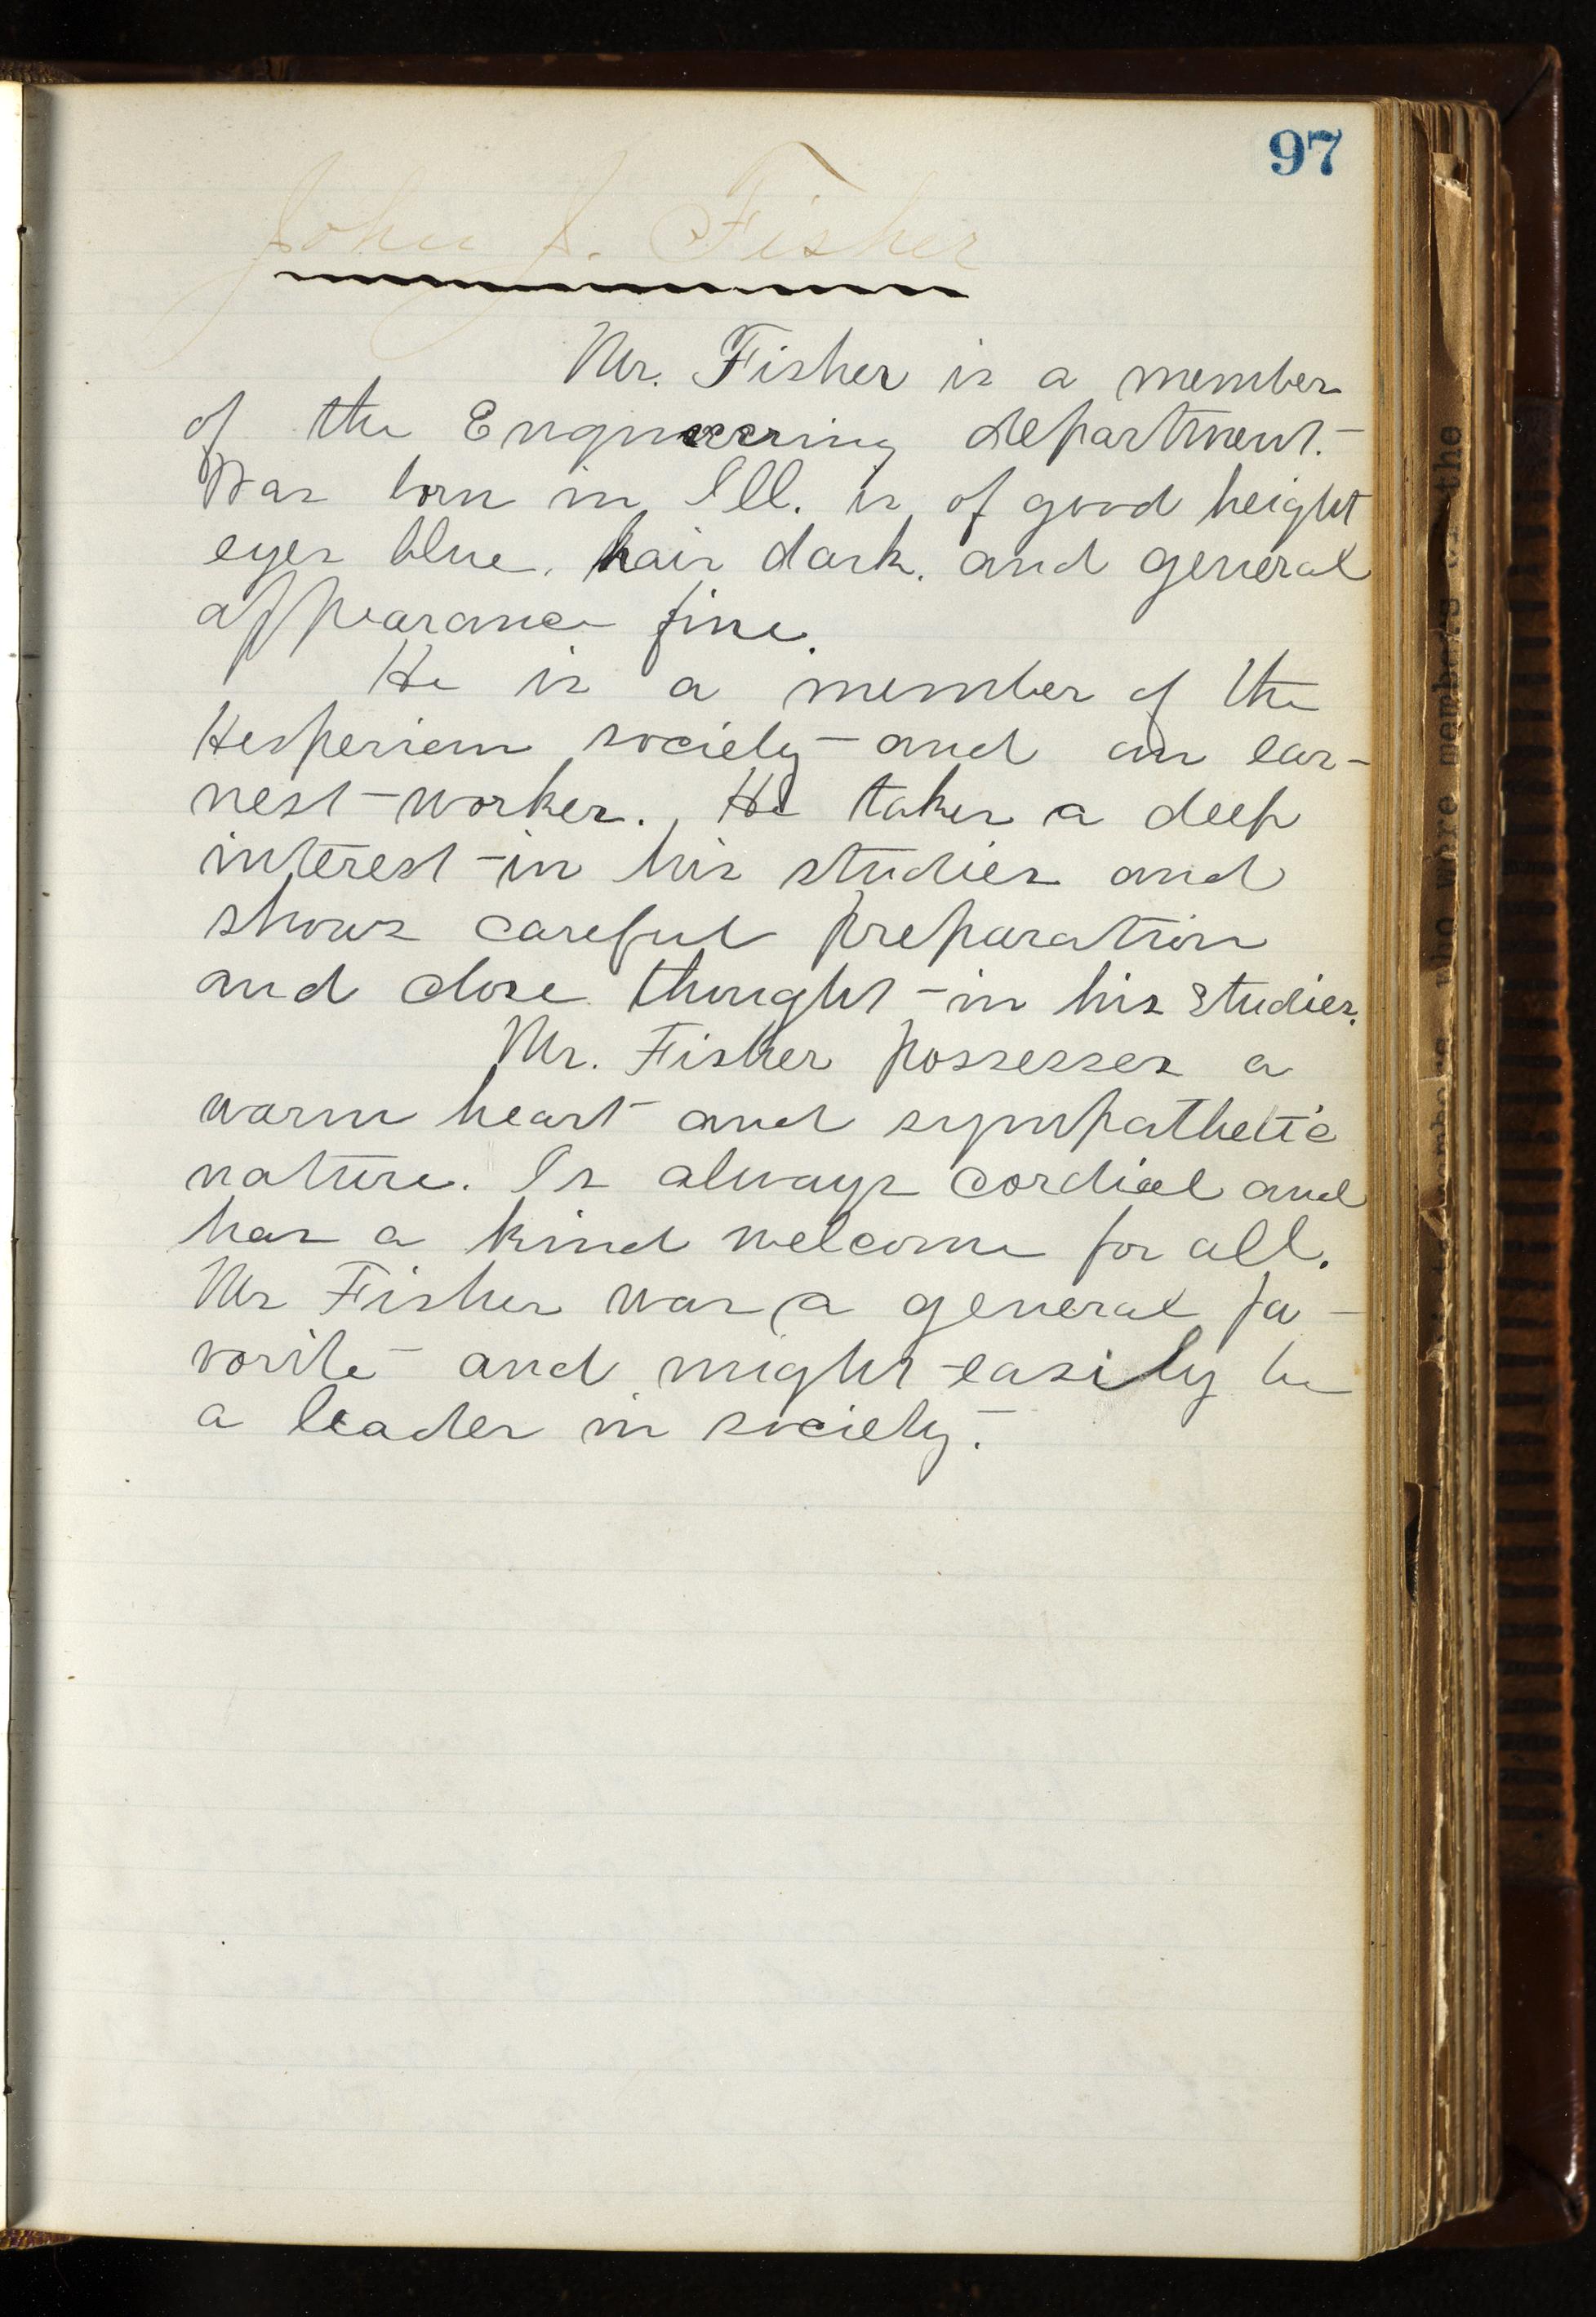 97
John J. Fisher
Mr. Fisher is a member
of the Engineering department.
Was born in Ill. is of good height
eyes blue, hair dark, and general
appearance fine.
He is a member of the
Hesperian society and an ear-
nest worker. He takes a deep
interest in his studies and
shows careful preparation
and close thought in his studies.
Mr. Fisher possesses a
warm heart and sympathetic
nature. Is always cordial and
has a kind welcome for all.
Mr Fisher was a general fa-
vorite and might easily be
a leader in society.
who were members the